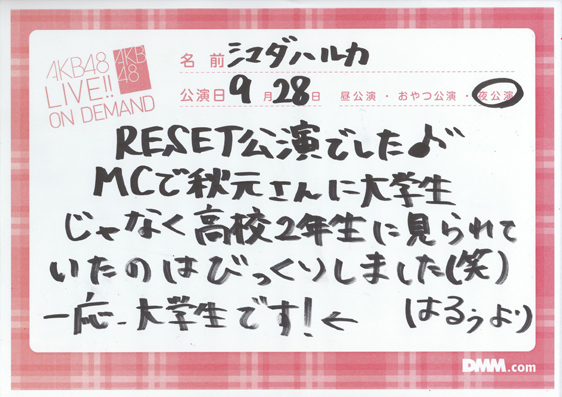 AKB48
LIVE!!
ON DEMAND
AKB
48
名前 シマダハルカ
公演日 9月28日 昼公演・おやつ公演・夜公演
RESET公演でした♪
MCで秋元さんに大学生
じゃなく高校2年生に見られて
いたのはびっくりしました(笑)
一応、大学生です!←
はるぅより
DMM.com